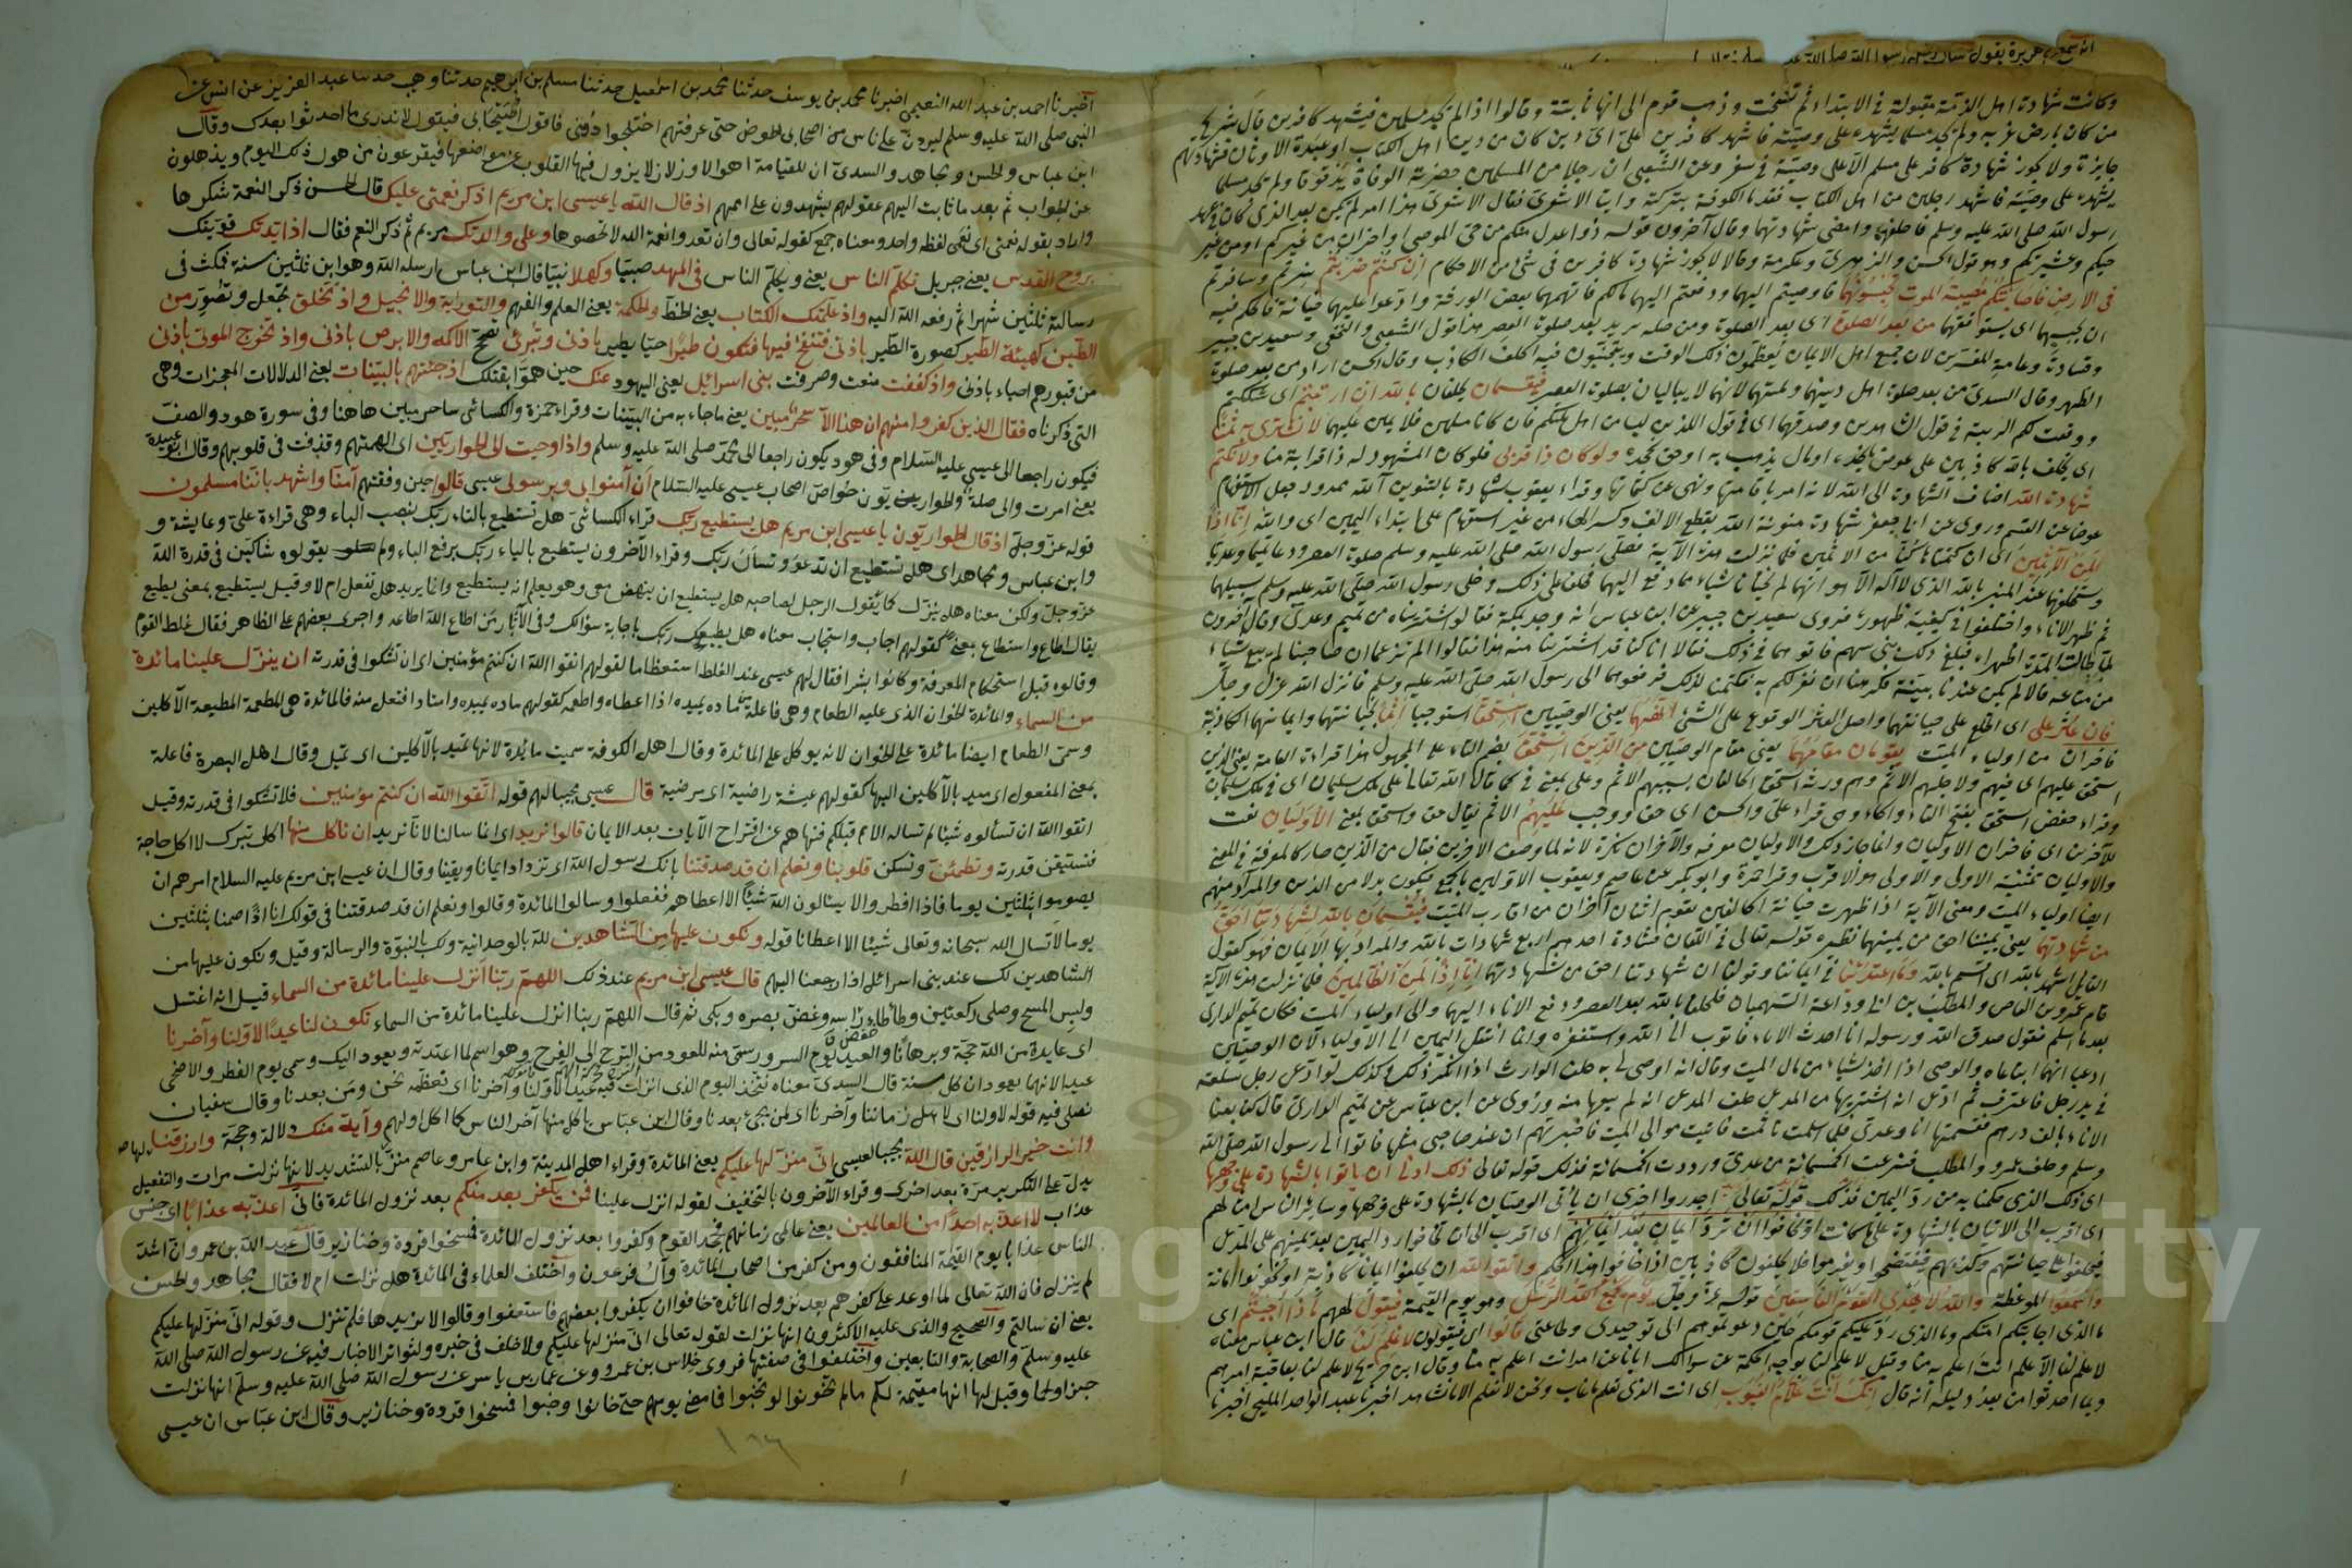 وكانت شهادة اهل الذمة مقبولة في الابتداء ثم نسخت وذهب قوم الى انها ثابتة وقالوا اذا لم نجد مسلمين فيشهد كافرين قال شريح
من كان بارض غربة ولم يجد مسلما يشهده على وصيته فاشهد كافرين على اي دين كان من دين اهل الكتاب او عبدة الاوثان فشهادتهم
جايزة ولا يجوز شهادة كافر على مسلم الا على وصية في سفر وعن الشعبي ان رجلا من المسلمين حضرته الوفاة بدقوقا ولم يجد مسلما
يشهده على وصيته فاشهد رجلين من اهل الكتاب فقدما الكوفة بتركته واتيا الاشعري فقال الاشعري هذا امر لم يكن بعد الذي كان في عهد
رسول الله صلى الله عليه وسلم فاحلفهما وامضى شهادتهما وقال آخرون قوله ذوا عدل منكم من حي الموصي او آخران من غيركم من غير
حيكم وعشيرتكم وهو قول الحسن والزهري وعكرمة وقالا لا يجوز شهادة كافر في شئ من الاحكام ان انتم ضربتم سرتم وسافرتم
في الارض فاصابتكم مصيبة الموت تحبسونهما
ان
من بعد الصلوة اي بعد الصلوة
وقتادة وعامة المفسرين لان جميع اهل الايمان يعظمون ذلك الوقت ويتجنبون فيه الحلف الكاذب وقال الحسن اراد من بعد صلوة
الظهر وقال السدي من بعد صلوة اهل دينهما وملتهما لانهما لا يباليان بصلوة العصر فيقسمان يحلفان بالله ان ارتبتم اي شككتم
ووقعت لكم الريبة في قول الشاهدين وصدقهما اي في قول اللذين ليسا من اهل ملتكم فان كانا مسلمين فلا يمين عليهما لا نشتري به ثمنا
اي نحلف بالله كاذبين على عوض ناخذه او مال نذهب به او حق نجحده ولو كان ذا قربى ولو كان المشهود له ذا قرابة منا ولا نكتم
شهادة الله اضاف الشهادة الى الله لانه امر باقامتها ونهى عن كتمانها وقراء يعقوب شهادة بالتنوين آلله ممدود جعل الاستفهام
عوضا عن القسم وروى عن ابي جعفر شهادة منونة الله بقطع الالف وكسر الهاء من غير استفهام على ابتداء اليمين اي والله انا اذا
لمن الآثمين اي ان كتمناها كنا من الاثمين فلما نزلت هذه الآية صلى رسول الله صلى الله عليه وسلم صلوة العصر ودعا تميما وعديا
فاستحلفهما عند المنبر بالله الذي لا اله الا هو انهما لم يختانا شيئا مما دفع اليهما فحلفا على ذلك وخلى رسول الله صلى الله عليه وسلم سبيلهما
ثم ظهر الاناء واختلفوا في كيفية ظهوره فروى سعيد بن جبير عن ابن عباس انه وجد بمكة فقالوا اشتريناه من تميم وعدي وقال آخرون
لما طالت المدة اظهراه فبلغ ذلك بني سهم فاتوهما في ذلك فقالا انا كنا قد اشترينا منه هذا فقالوا الم تزعمان ان صاحبنا لم يبع شيئا
من متاعه قالا لم يكن عندنا بينة فكرهنا ان نقر لكم به فكتمنا لذلك فرفعوهما الى رسول الله صلى الله عليه وسلم فانزل الله عز وجل
فان عثر على اي اطلع على خيانتهما واصل العثر الوقوع على الشئ انهما يعني الوصيين استحقا استوجبا اثما بخيانتهما وايمانهما الكاذبة
فاخران من اولياء الميت يقومان مقامهما يعني مقام الوصيين من الذين استحق بضم التاء على المجهول هذا قراءة العامة يعني الذين
استحق عليهم اي فيهم ولاجلهم الاثم وهم ورثة
وقراء حفص استحق بفتح التاء والحاء وهي قراءة علي والحسن اي حق ووجب عليهم الاثم يقال حق واستحق بمعنى الاوليان نعت
للآخرين اي فاخران الاوليان
والاوليان تثنية الاولى والاولى هو الاقرب وقرا حمزة وابو بكر عن عاصم ويعقوب الاولين بالجمع فيكون بدلا من الذين والمراد منهم
ايضا اولياء الميت ومعنى الآية اذا ظهرت خيانة الحالفين يقوم اثنان آخران من اقارب الميت فيقسمان بالله لشهادتنا احق
من شهادتهما يعني يميننا احق من يمينهما نظيره قوله تعالى في اللعان فشهادة احدهم اربع شهادات بالله والمراد بها الايمان فهو كقول
القائل اشهد بالله اي اقسم بالله وما اعتدينا في ايماننا وقولنا ان شهادتنا احق من شهادتهما انا اذا لمن الظالمين فلما نزلت هذه الآية
قام عمرو بن العاص والمطلب بن ابي وداعة السهميان فحلفا بالله بعد العصر ودفع الاناء اليهما والى اولياء الميت فكان تميم الداري
بعدما اسلم يقول صدق الله ورسوله انا اخذت الاناء فاتوب الى الله واستغفره وانما انتقل اليمين الى الاولياء لان الوصيين
ادعيا انهما ابتاعاه والوصي اذا اخذ شيئا من مال الميت وقال انه اوصى لي به حلف الوارث اذا انكر ذلك وكذلك لو ادعى رجل سلعة
في يد رجل فاعترف ثم ادعى انه اشتراها من المدعي حلف المدعي انه لم يبعها منه وروي عن ابن عباس عن تميم الداري قال كنا بعنا
الاناء بالف درهم فقسمتها انا وعدي فلما اسلمت تاثمت فاتيت موالي الميت فاخبرتهم ان عند صاحبي مثلها فاتوا الى رسول الله صلى الله
وسلم وحلف عمرو والمطلب فنزعت الخمسمائة من عدي ورددت الخمسمائة فذلك قوله تعالى ذلك ادنى ان ياتوا بالشهادة على وجهها
اي ذلك الذي حكمنا به من رد اليمين اجدر واحرى ان يأتي الوصيان بالشهادة على وجهها وسائر الناس امثالهم
اي اقرب الى الاتيان بالشهادة على ما كانت او يخافوا ان ترد ايمان بعد ايمانهم اي اقرب الى ان يخافوا رد اليمين بعد يمينهم على المدعي
فيحلفوا على خيانتهم وكذبهم فيفتضحوا ويغرموا فلا يحلفون كاذبين اذا خافوا هذا الحكم واتقوا الله ان تحلفوا ايمانا كاذبة او تخونوا امانة
واسمعوا الموعظة والله لا يهدي القوم الفاسقين قوله عز وجل يوم يجمع الله الرسل وهو يوم القيمة فيقول لهم ماذا اجبتم اي
ما الذي اجابتكم امتكم وما الذي رد عليكم قومكم حين دعوتموهم الى توحيدي وطاعتي قالوا اي فيقولون لا علم لنا قال ابن عباس معناه
لا علم لنا الا علم انت اعلم به منا وقيل لا علم لنا بوجه الحكمة عن سؤالك ايانا عن امر انت اعلم به منا وقال ابن جريج لا علم لنا بعاقبة امرهم
وبما احدثوا من بعد دليله انه قال انك انت علام الغيوب اي انت الذي تعلم ما غاب ونحن لا نعلم الا ما نشاهد اخبرنا عبد الواحد المليحي اخبرنا
اخبرنا احمد بن عبد الله النعيمي اخبرنا محمد بن يوسف حدثنا محمد بن اسمعيل حدثنا مسلم بن ابراهيم حدثنا وهيب حدثنا عبد العزيز عن انس عن
النبي صلى الله عليه وسلم ليردن علي ناس من اصحابي الحوض حتى عرفتهم اختلجوا دوني فاقول اصيحابي فيقول لا تدري ما احدثوا بعدك وقال
ابن عباس والحسن ومجاهد والسدي ان للقيامة اهوالا وزلازل يزول فيها القلوب عن مواضعها فيفزعون من هول ذلك اليوم ويذهلون
عن الجواب ثم بعد ما ثابت اليهم عقولهم يشهدون على اممهم اذ قال الله يا عيسى ابن مريم اذكر نعمتي عليك قال الحسن ذكر النعمة شكرها
واراد بقوله نعمتي اي نعمي لفظه واحد ومعناه جمع كقوله تعالى وان تعدوا نعمة الله لا تحصوها وعلى والدتك مريم ثم ذكر النعم فقال اذ ايدتك قويتك
بروح القدس يعني جبريل تكلم الناس يعني ويكلم الناس في المهد صبيا وكهلا نبيا قال ابن عباس ارسله الله وهو ابن ثلثين سنة فمكث في
رسالته ثلثين شهرا ثم رفعه الله اليه واذ علمتك الكتاب يعني الخط والحكمة يعني العلم والفهم والتوراية والانجيل واذ تخلق تجعل وتصور من
الطين كهيئة الطير كصورة الطير باذني فتنفخ فيها فتكون طيرا حيا يطير باذني وتبرئ تصحح الاكمه والابرص باذني واذ تخرج الموتى باذني
من قبورهم احياء باذني واذ كففت منعت وصرفت بني اسرائيل يعني اليهود عنك حين هموا بقتلك اذ جئتهم بالبينات يعني الدلالات المعجزات وهي
التي ذكرناه فقال الذين كفروا منهم ان هذا الا سحر مبين يعني ما جاء به من البينات وقراء حمزة والكسائي ساحر مبين هاهنا وفي سورة هود والصف
فيكون راجعا الى عيسى عليه السلام وفي هود يكون راجعا الى محمد صلى الله عليه وسلم واذ اوحيت الى الحواريين اي الهمتهم وقذفت في قلوبهم وقال ابو عبيدة
يعني امرت والى صلة والحواريون خواص اصحاب عيسى عليه السلام ان آمنوا بي وبرسولي عيسى قالوا حين وفقتهم آمنا واشهد باننا مسلمون
قوله عز وجل اذ قال الحواريون يا عيسى ابن مريم هل يستطيع ربك قراء الكسائي هل تستطيع بالتاء ربك بنصب الباء وهي قراءة علي وعايشة و
وابن عباس ومجاهد اي هل تستطيع ان تدعو وتسأل ربك وقراء الآخرون يستطيع بالياء ربك برفع الباء ولم يقولوه شاكين في قدرة الله
عز وجل ولكن معناه هل ينزل كما يقول الرجل لصاحبه هل يستطيع ان ينهض معي وهو يعلم انه يستطيع وانما يريد هل تفعل ام لا وقيل يستطيع بمعنى يطيع
يقال اطاع واستطاع بمعنى كقولهم اجاب واستجاب معناه هل يطيعك ربك باجابة سؤالك وفي الآثار من اطاع الله اطاعه واجرى بعضهم على الظاهر فقال غلط القوم
وقالوه قبل استحكام المعرفة وكانوا بشرا فقال لهم عيسى عند الغلط استعظاما لقولهم اتقوا الله ان كنتم مؤمنين اي ان تشكوا في قدرته ان ينزل علينا مائدة
من السماء والمائدة الخوان الذي عليه الطعام وهي فاعلة من ماده يميده اذا اعطاه واطعمه كقولهم ماره يميره وامتار افتعل منه فالمائدة هي المطعمة المطيعة الآكلين
وسمى الطعام ايضا مائدة على الخوان لانه يوكل على المائدة وقال اهل الكوفة سميت مائدة لانها تميد بالآكلين اي تميل وقال اهل البصرة فاعلة
بمعنى المفعول اي ميد بالآكلين اليها كقولهم عيشة راضية اي مرضية قال عيسى مجيبا لهم قوله اتقوا الله ان كنتم مؤمنين فلا تشكوا في قدرته وقيل
اتقوا الله ان تسألوه شيئا لم تساله الامم قبلكم فنهاهم عن اقتراح الآيات بعد الايمان قالوا نريد اي انما سالنا لانا نريد ان ناكل منها اكل تبرك لا اكل حاجة
فنستيقن قدرته وتطمئن وتسكن قلوبنا ونعلم ان قد صدقتنا بانك رسول الله اي نزداد ايمانا ويقينا وقال ان عيسى ابن مريم عليه السلام امرهم ان
يصوموا ثلثين يوما فاذا افطروا لا يسالون الله شيئا الا اعطاهم ففعلوا وسالوا المائدة وقالوا ونعلم ان قد صدقتنا في قولك انا اذا صمنا ثلثين
يوما لا نسال الله سبحانه وتعالى شيئا الا اعطانا قوله ونكون عليها من الشاهدين لله بالوحدانية ولك بالنبوة والرسالة وقيل ونكون عليها من
الشاهدين لك عند بني اسرائيل اذا رجعنا اليهم قال عيسى ابن مريم عند ذلك اللهم ربنا انزل علينا مائدة من السماء قيل انه اغتسل
ولبس المسح وصلى ركعتين وطأطاء راسه وغض بصره وبكى ثم قال اللهم ربنا انزل علينا مائدة من السماء تكون لنا عيدا لاولنا وآخرنا
اي عايدة من الله حجة وبرهانا والعيد يوم السرور وسمي منه للعود من الترح الى الفرح وهو اسم لما اعتدته ويعود اليك وسمي يوم الفطر والاضحى
عيدا لانهما يعودان كل سنة قال السدي معناه نتخذ اليوم الذي انزلت فيه عيدا لاولنا وآخرنا اي نعظمه نحن ومن بعدنا وقال سفيان
نصلي فيه قوله لاولنا اي لاهل زماننا وآخرنا اي لمن يجئ بعدنا وقال ابن عباس ياكل منها آخر الناس كما اكل اولهم وآية منك دلالة وحجة وارزقنا
وانت خير الرازقين قال الله مجيبا لعيسى اني منزلها عليكم يعني المائدة وقراء اهل المدينة وابن عامر وعاصم منزلها بالتشديد لانها نزلت مرات والتفعيل
يدل على التكرير مرة بعد اخرى وقراء الآخرون بالتخفيف لقوله انزل علينا فمن يكفر بعد منكم بعد نزول المائدة فاني اعذبه عذابا اي جنس
عذاب لا اعذبه احدا من العالمين يعني عالمي زمانهم فجحد القوم وكفروا بعد نزول المائدة فمسخوا قردة وخنازير قال عبد الله بن عمرو ان اشد
الناس عذابا يوم القيمة المنافقون ومن كفر من اصحاب المائدة وآل فرعون واختلف العلماء في المائدة هل نزلت ام لا فقال مجاهد والحسن
لم ينزل فان الله تعالى لما اوعد على كفرهم بعد نزول المائدة خافوا ان يكفروا بعضهم فاستعفوا وقالوا لا نريدها فلم تنزل وقوله اني منزلها عليكم
يعني ان سالتم والصحيح والذي عليه الاكثرون انها نزلت لقوله تعالى اني منزلها عليكم ولا خلف في خبره ولتواتر الاخبار فيه عن رسول الله صلى الله
عليه وسلم والصحابة والتابعين واختلفوا في صفتها فروى خلاس بن عمرو وعن عمار بن ياسر عن رسول الله صلى الله عليه وسلم انها نزلت
خبزا ولحما وقيل لها انها مقيمة لكم ما لم تخونوا او تخبؤا فما مضى يومهم حتى خانوا وخبؤا فمسخوا قردة وخنازير وقال ابن عباس ان عيسى